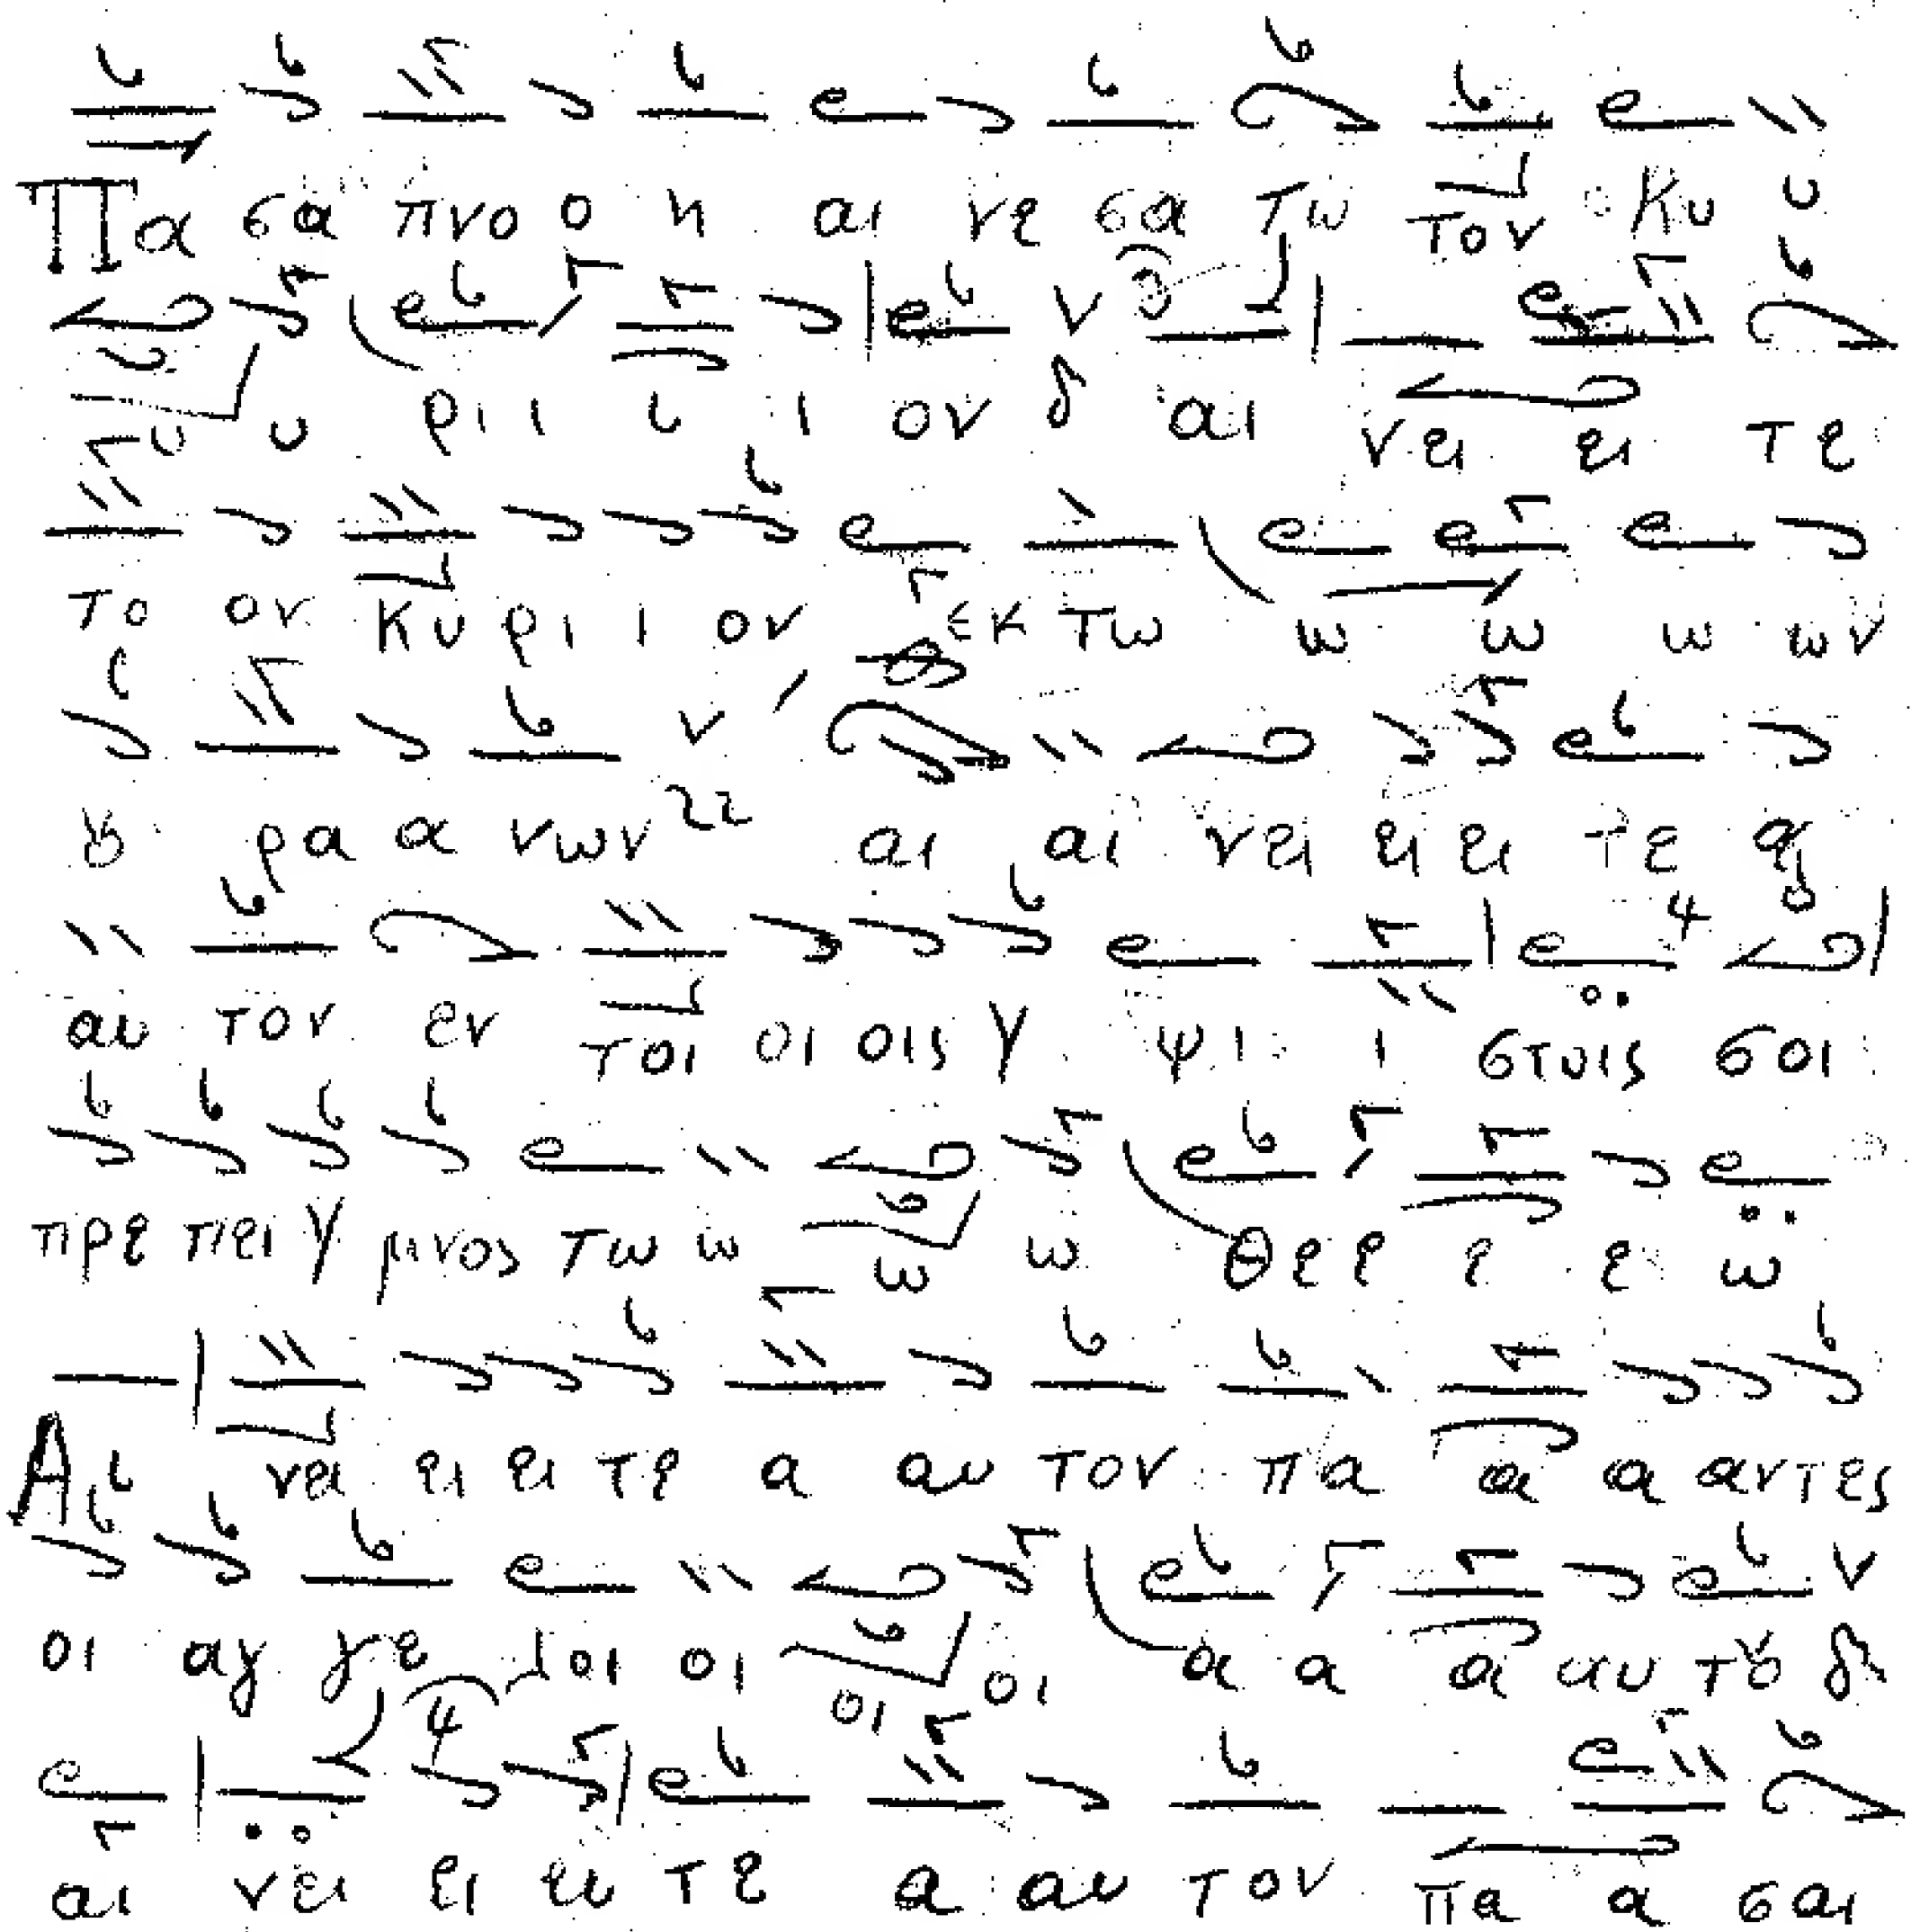 Πα σα πνο ο η αι νε σα τω τον Κυ υ
υ υ ρι ι ι ι ον δ αι νει ει τε
το ον Κυ ρι ι ον εκ τω ω ω ω ων
ȣ ρα α νων 22 αι αι νει ει ει τε α
αυ τον εν τοι οι οις γ ψι ι στοις σοι
πρε πει γ μνος τω ω ω ω Θε ε ε ε ω
Αι νει ει ει τε α αυ τον πα α α αντες
οι αγ γε λοι οι οι οι α α α αυ τȣ δ
αι νει ει ει τε α αυ τον πα α σαι